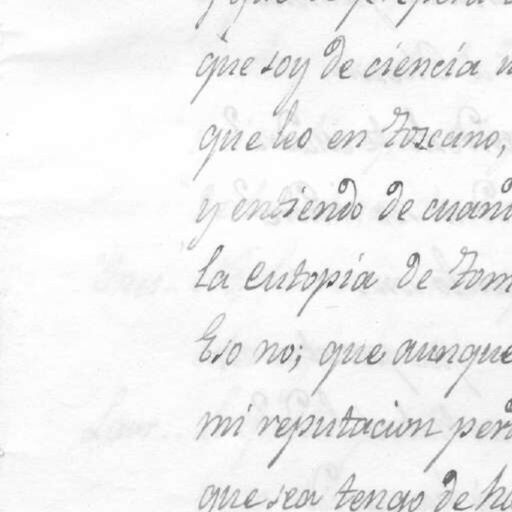 que soy de ciencia
que leo en Toscano,
y entiendo de cuand
la eutopia de Tom
Eso no; que aunque
mi reputacion perd
que sea tengo de ha